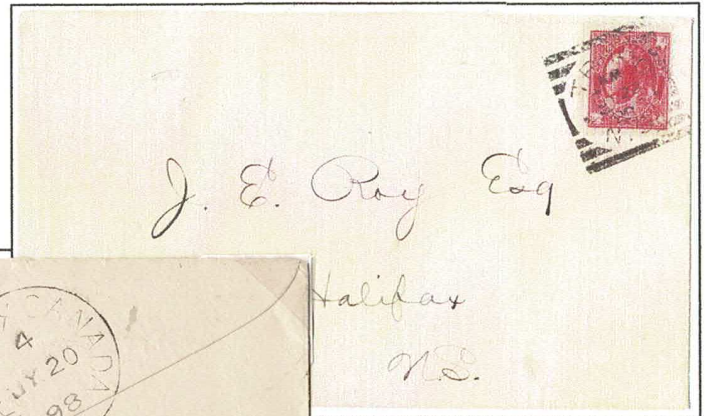 J. E. Roy Esq
Halifax
N.S.
CANADA
4
JY 20
98